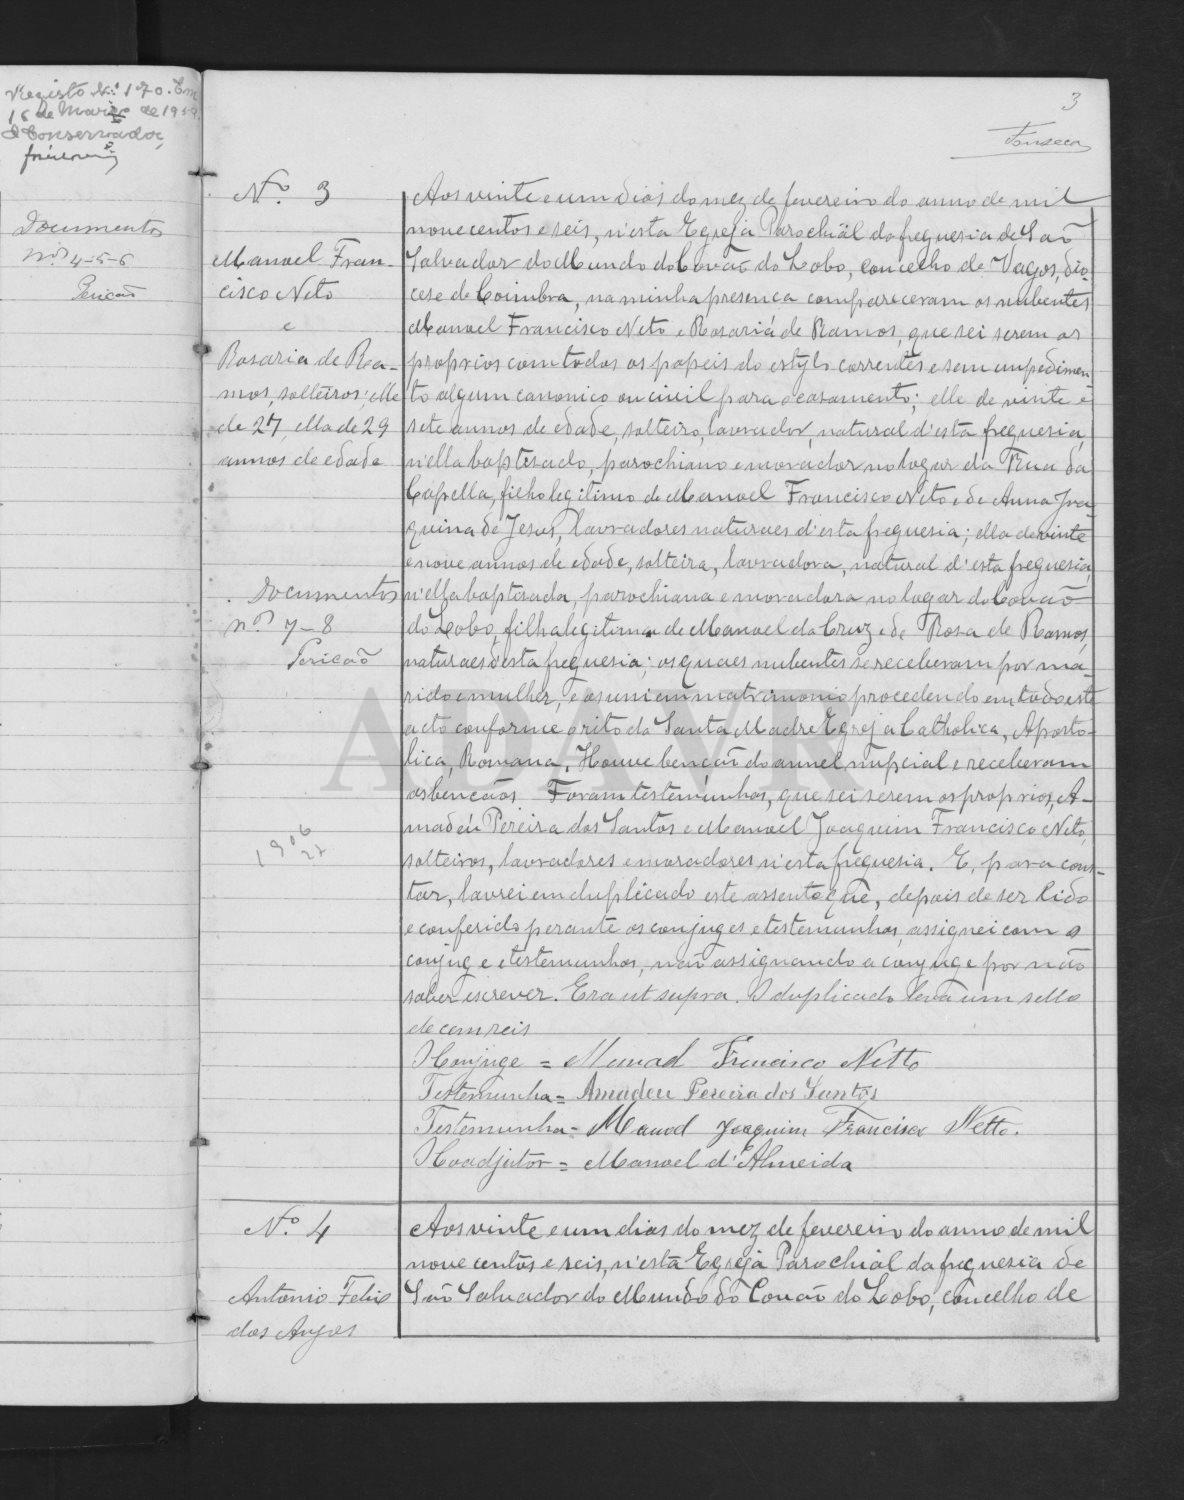 Registo N.º 170. Em
16 de Março de 19
O Conservador,
Documentos
N.os 4-5-6
Pericão
3
Fonseca
N.º 3
Manoel Fran-
cisco Neto
e
Rosaria de Ra-
mos, solteiros; elle
de 27, ella de 29
annos de edade
Documentos
n.os 7-8
Pericão
1906
27
Aos vinte e um dias do mez de fevereiro do anno de mil
novecentos e seis, n'esta Egreja Parochial da freguesia de São
Salvador do Mundo do Covão do Lobo, concelho de Vagos, dio-
cese de Coimbra, na minha presença compareceram os nubentes
Manoel Francisco Neto e Rosaria de Ramos, que sei serem os
proprios com todos os papeis do estylo correntes e sem impedimen-
to algum canonico ou civil para o casamento; elle de vinte e
sete annos de edade, solteiro, lavrador, natural d'esta freguesia,
n'ella baptisado, parochiano e morador no logar da Rua da
Capella, filho legitimo de Manoel Francisco Neto e de Anna Joa-
quina de Jesus, lavradores naturaes d'esta freguesia; ella de vinte
e nove annos de edade, solteira, lavradora, natural d'esta freguesia,
n'ella baptisada, parochiana e moradora no logar do Covão
do Lobo, filha legitima de Manoel da Cruz e de Rosa de Ramos,
naturaes d'esta freguesia; os quaes nubentes se receberam por ma-
rido e mulher, e os uni em matrimonio procedendo em todo este
acto conforme o rito da Santa Madre Egreja Catholica, Aposto-
lica, Romana. Houve benção do annel nupcial e receberam
as bençãos Foram testemunhas, que sei serem os proprios, A-
madeu Pereira dos Santos e Manoel Joaquim Francisco Neto,
solteiros, lavradores e moradores n'esta freguesia. E, para cons-
tar, lavrei em duplicado este assento que, depois de ser lido
e conferido perante os conjuges e testemunhas, assignei com o
conjuge e testemunhas, não assignando a conjuge por não
saber escrever. Era ut supra. O duplicado leva um sello
de cem reis
O Conjuge = Manoel Francisco Netto
Testemunha = Amadeu Pereira dos Santos
Testemunha = Manoel Joaquim Francisco Netto.
O Coadjutor = Manoel d'Almeida
N.º 4
Antonio Felix
dos Anjos
Aos vinte e um dias do mez de fevereiro do anno de mil
nove centos e seis, n'esta Egreja Parochial da freguesia de
São Salvador do Mundo do Covão do Lobo, concelho de
ADAVR